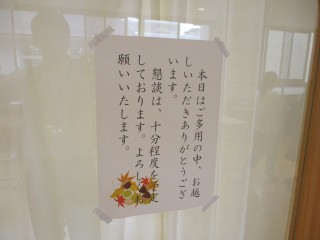 本日はご多用の中、お越
しいただきありがとうござ
います。
懇談は、十分程度を予定
しております。よろしくお
願いいたします。